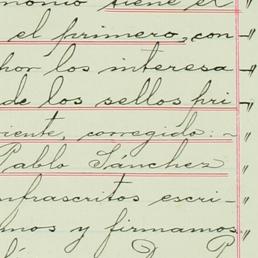 monio tiene el
el primero, con
por los interesa
de los sellos pri
iente, corregido: ~
Pablo Sánchez
nfrascritos escri-
mos y firmamos
D. P